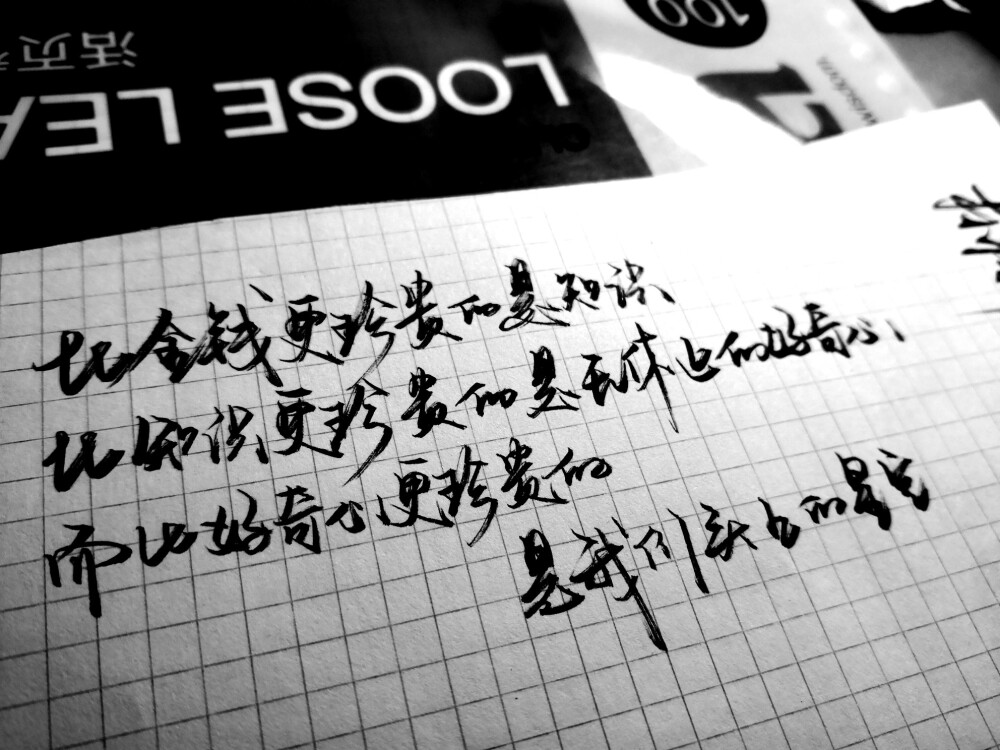 活页
LOOSE LEA
100
wisdom
比金钱更珍贵的是知识
比知识更珍贵的是无休止的好奇心
而比好奇心更珍贵的
是我们头上的星空